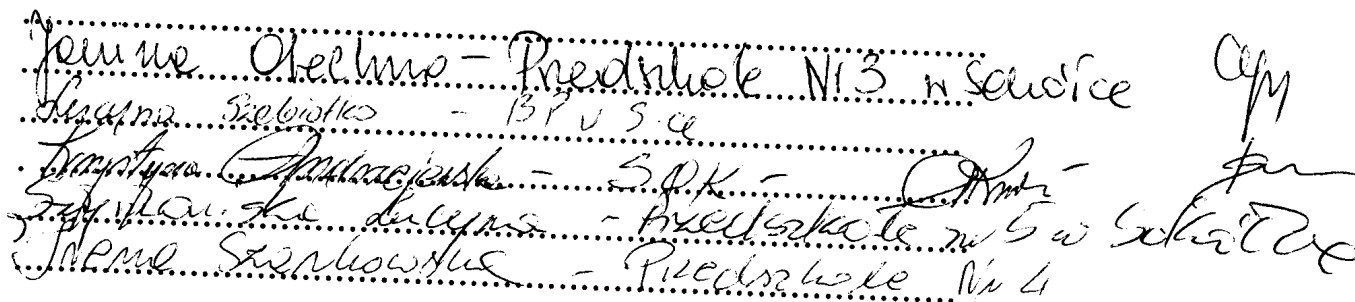 Janina Olechno - Przedszkole Nr 3 w Sokółce
Lucyna - BP
Krystyna Andrzejewska - SOK -
Lucyna - Przedszkole nr 5 w Sokółce
Irena Szankowska - Przedszkole Nr 4